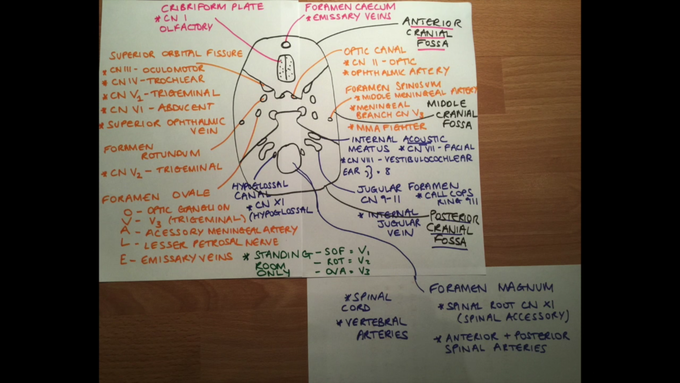 CRIBRIFORM PLATE
* CN I
OLFACTORY
FORAMEN CAECUM
* EMISSARY VEINS
ANTERIOR
CRANIAL
FOSSA
SUPERIOR ORBITAL FISSURE
* CN III - OCULOMOTOR
* CN IV - TROCHLEAR
* CN V1 - TRIGEMINAL
* CN VI - ABDUCENT
* SUPERIOR OPHTHALMIC
VEIN
OPTIC CANAL
* CN II - OPTIC
* OPHTHALMIC ARTERY
FORAMEN SPINOSUM
* MIDDLE MENINGEAL ARTERY
* MENINGEAL
BRANCH CN V3
* MMA FIGHTER
MIDDLE
CRANIAL
FOSSA
FORAMEN
ROTUNDUM
* CN V2 - TRIGEMINAL
INTERNAL ACOUSTIC
MEATUS * CN VII - FACIAL
* CN VIII - VESTIBULOCOCHLEAR
EAR = 8
FORAMEN OVALE
O - OPTIC GANGLION
V - V3 (TRIGEMINAL)
A - ACESSORY MENINGEAL ARTERY
L - LESSER PETROSAL NERVE
E - EMISSARY VEINS
HYPOGLOSSAL
CANAL
* CN XI
(HYPOGLOSSAL
JUGULAR FORAMEN
CN 9-11 * CALL COPS
RING 911
* INTERNAL
JUGULAR
VEIN
POSTERIOR
CRANIAL
FOSSA
* STANDING - SOF = V1
ROOM - ROT = V2
ONLY - OVA = V3
FORAMEN MAGNUM
* SPINAL
CORD
* VERTEBRAL
ARTERIES
* SPINAL ROOT CN XI
(SPINAL ACCESSORY)
* ANTERIOR + POSTERIOR
SPINAL ARTERIES